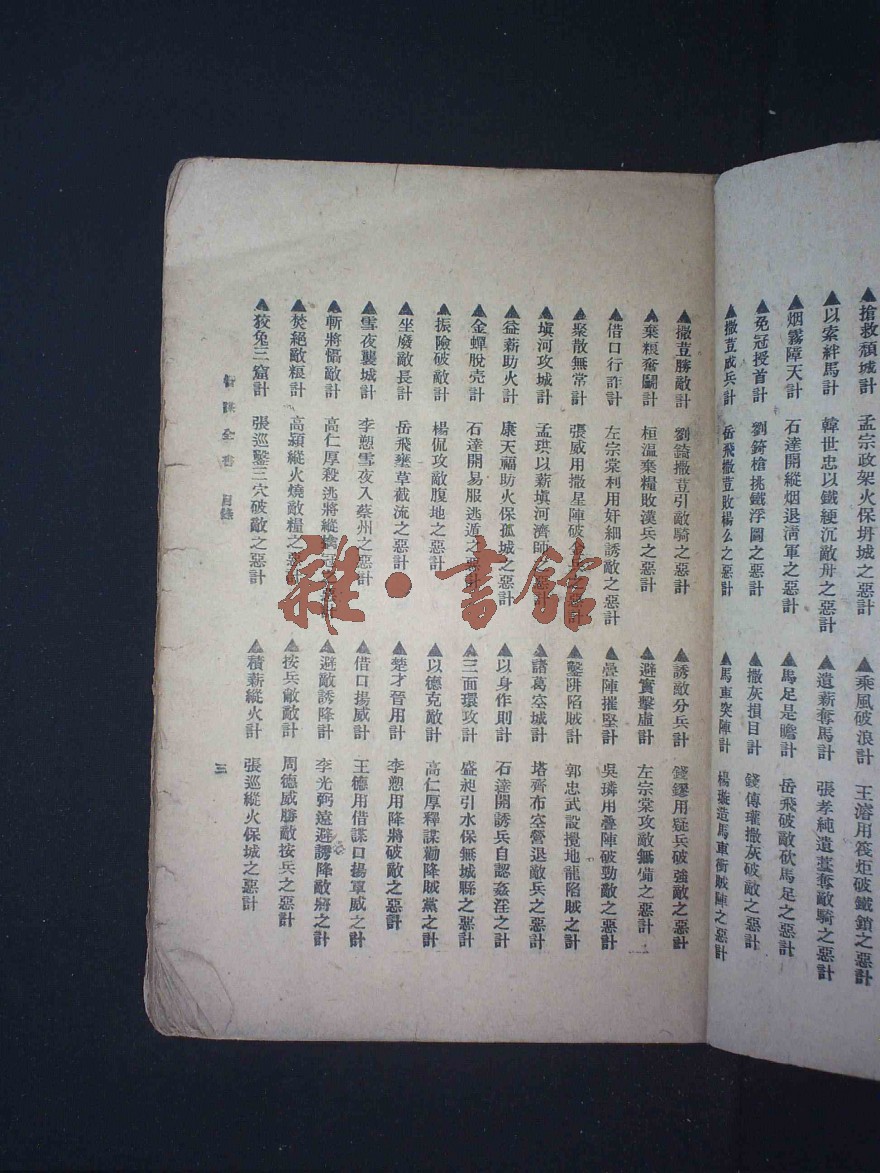 ▲搶救頹城計　孟宗政架火保坍城之惡計
▲以索絆馬計　韓世忠以鐵綆沉敵舟之惡計
▲烟霧障天計　石達開縱烟退清軍之惡計
▲免冠授首計　劉錡槍挑鐵浮圖之惡計
▲撒荳成兵計　岳飛撒荳敗楊么之惡計
▲乘風破浪計　王濬用筏炬破鐵鎖之惡計
▲遺薪奪馬計　張孝純遺藁奪敵騎之惡計
▲馬足是瞻計　岳飛破敵砍馬足之惡計
▲撒灰損目計　錢傳瓘撒灰破敵之惡計
▲馬車突陣計　楊璇造馬車衝賊陣之惡計
▲撒荳勝敵計　劉錡撒荳引敵騎之惡計
▲棄粮奮鬭計　桓溫棄糧敗漢兵之惡計
▲借口行詐計　左宗棠利用奸細誘敵之惡計
▲聚散無常計　張威用撒星陣破之惡計
▲塡河攻城計　孟珙以薪塡河濟師之惡計
▲益薪助火計　康天福助火保孤城之惡計
▲金蟬脫壳計　石達開易服逃遁之惡計
▲振險破敵計　楊侃攻敵腹地之惡計
▲坐廢敵長計　岳飛壅草截流之惡計
▲雪夜襲城計　李愬雪夜入蔡州之惡計
▲斬將慴敵計　高仁厚殺逃將縱擒寇計
▲焚絕敵粮計　高熲縱火燒敵糧之惡計
▲狡兔三窟計　張巡鑿三穴破敵之惡計
▲誘敵分兵計　錢鏐用疑兵破強敵之惡計
▲避實擊虛計　左宗棠攻敵無備之惡計
▲疊陣摧堅計　吳璘用疊陣破勁敵之惡計
▲鑿阱陷賊計　郭忠武設攪地龍陷賊之計
▲諸葛空城計　塔齊布空營退敵兵之惡計
▲以身作則計　石達開誘兵自認姦淫之計
▲三面環攻計　盛昶引水保無城縣之惡計
▲以德克敵計　高仁厚釋諜勸降賊黨之計
▲楚才晉用計　李愬用降將破敵之惡計
▲借口揚威計　王德用借諜口揚軍威之計
▲避敵誘降計　李光弼遠避誘降敵將之計
▲按兵敝敵計　周德威勝敵按兵之惡計
▲積薪縱火計　張巡縱火保城之惡計
全書　目錄
三
雜·書館